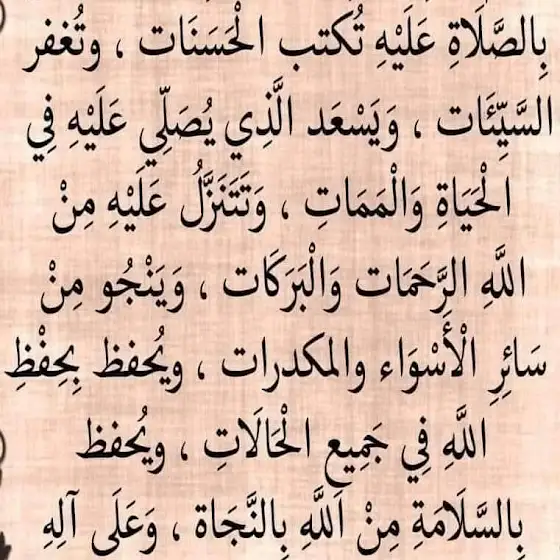 بِالصَّلَاةِ عَلَيْهِ تُكتب الْحَسَنَات ، وتُغفر
السَّيِّئَات ، وَيَسْعَد الَّذِي يُصَلِّي عَلَيْهِ فِي
الْحَيَاةِ وَالْمَمَاتِ ، وَتَتَنَزَّلُ عَلَيْهِ مِنْ
اللَّهِ الرَّحَمَات وَالْبَرَكَات ، وَيَنْجُو مِنْ
سَائِرِ الْأَسْوَاء والمكدرات ، ويُحفظ بِحِفْظِ
اللَّهِ فِي جَمِيعِ الْحَالَاتِ ، ويُحفظ
بِالسَّلَامَةِ مِنْ اللَّهِ بِالنَّجَاة ، وَعَلَى آلِهِ